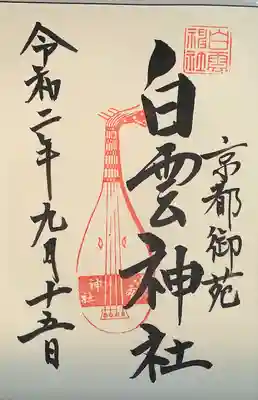 京都御苑
白雲神社
令和二年九月十五日
白雲
神社
神社